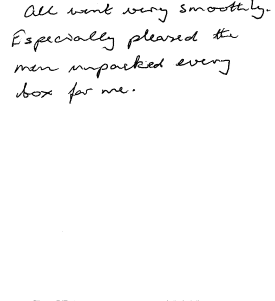 All went very smoothly.
Especially pleased the
men unpacked every
box for me.